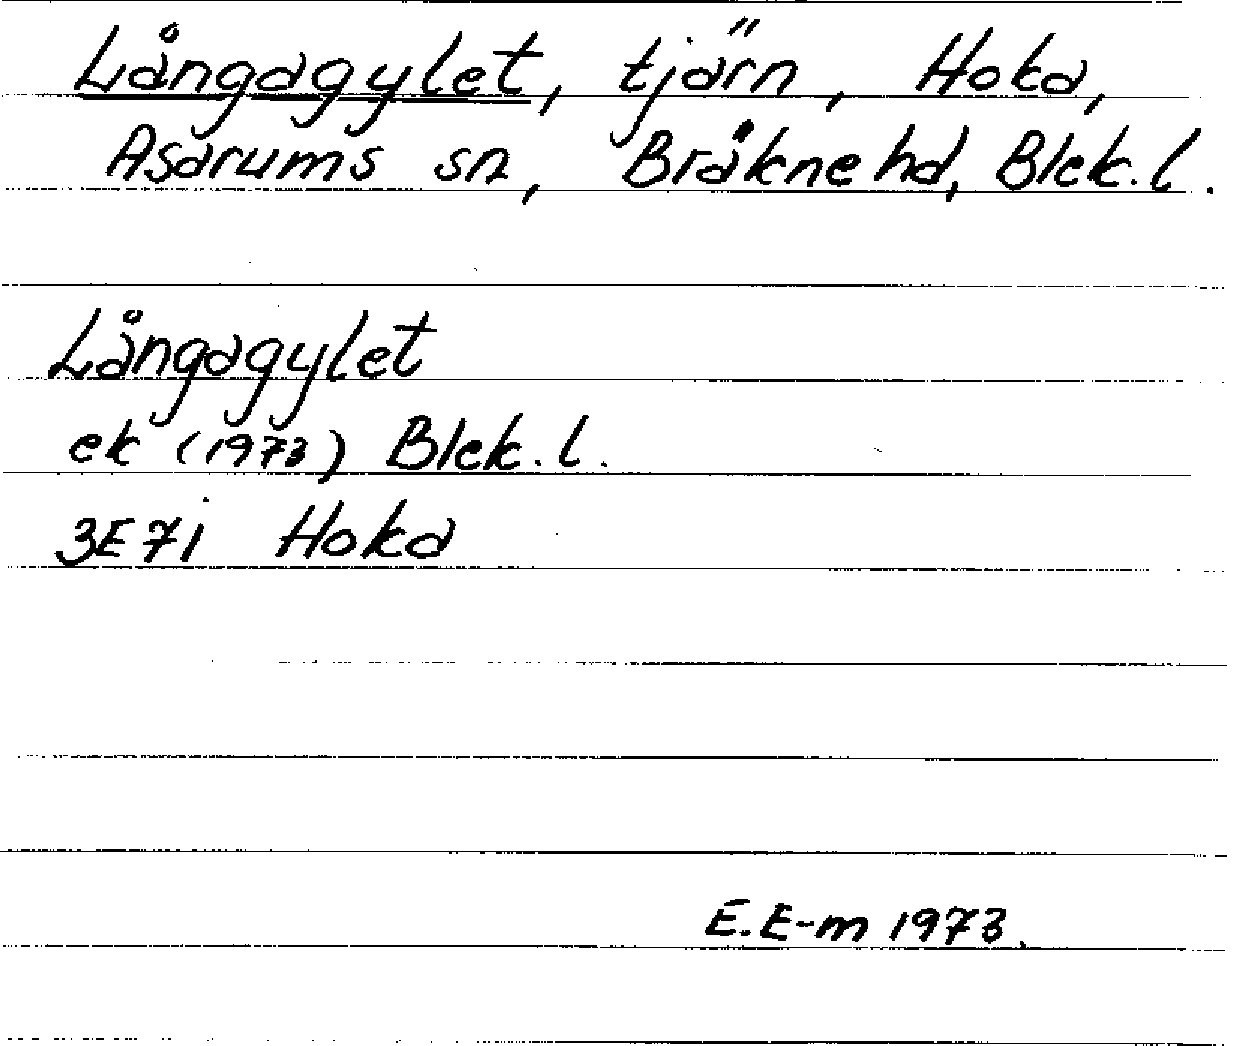 Långagylet, tjärn, Hoka,
Asarums sn, Bräkne hd, Blek. l.
Långagylet
ek (1973) Blek. l.
3E7i Hoka
E. E-m 1973.